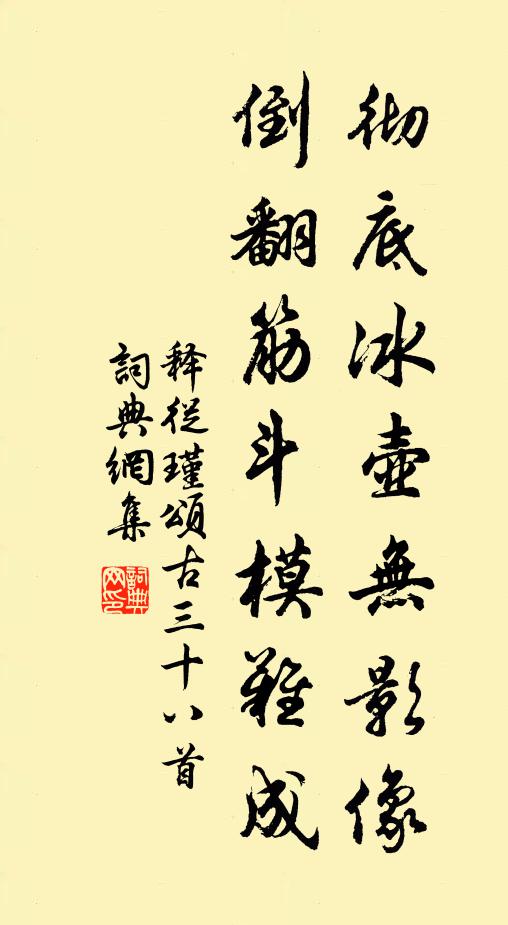 彻底冰壺無影像
倒翻筋斗模難成
释從瑾頌古三十八首
詞典網集
詞典网印